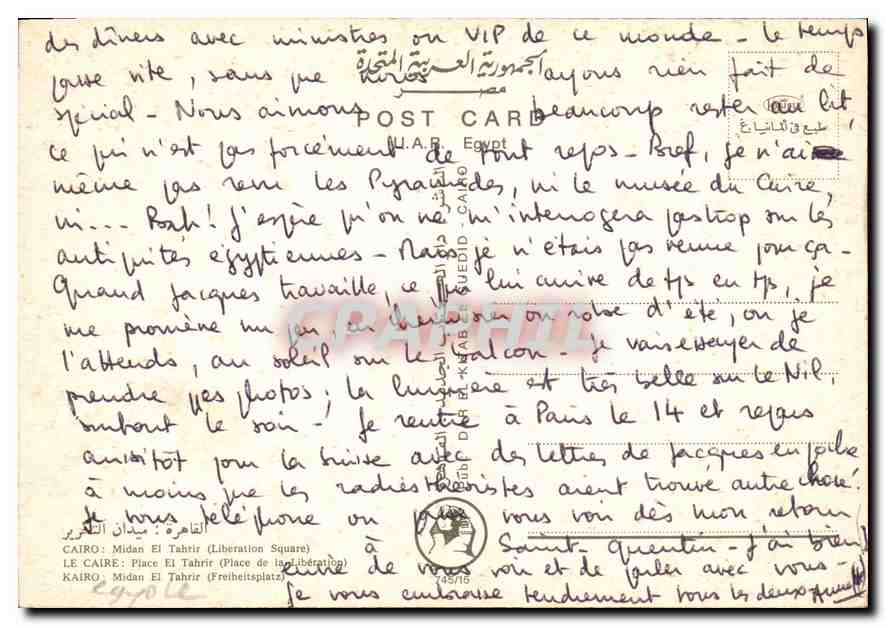 des dîners avec ministres ou VIP de ce monde - le temps
passe vite, sans que nous ayons rien fait de
spécial - Nous aimons beaucoup rester au lit,
ce qui n'est pas forcément de tout repos - Bref, je n'ai
même pas revu les Pyramides, ni le musée du Caire,
ni... Bah! J'espère qu'on ne m'interrogera pas trop sur les
antiquités égyptiennes - Mais je n'étais pas venue pour ça -
Quand Jacques travaille, ce qui lui arrive de tps en tps, je
me promène un peu, en chemisier ou robe d'été, ou je
l'attends, au soleil sur le balcon - Je vais essayer de
prendre des photos; la lumière est très belle sur le Nil,
surtout le soir - Je rentre à Paris le 14 et repars
aussitôt pour la Suisse avec des lettres de Jacques en poche
à moins que les aient trouvé autre chose!
Je vous téléphone ou vous vois dès mon retour
à Saint-Quentin - J'ai bien
envie de vous voir et de parler avec vous -
Je vous embrasse tendrement tous les deux - Anne
الجمهورية العربية المتحدة
مصر
POST CARD
U.A.R. Egypt
CPAPHIL
القاهرة : ميدان التحرير
CAIRO: Midan El Tahrir (Liberation Square)
LE CAIRE: Place El Tahrir (Place de la Libération)
KAIRO: Midan El Tahrir (Freiheitsplatz)
745/15
egypte